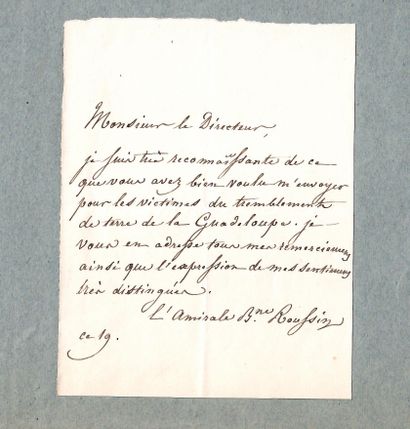 Monsieur le Directeur,
je suis très reconnaissante de ce
que vous avez bien voulu m'envoyer
pour les victimes du tremblement
de terre de la Guadeloupe. je
vous en adresse tous mes remerciemens
ainsi que l'expression de mes sentimens
très distingués.
L'Amirale B.ne Roussin
ce 19.